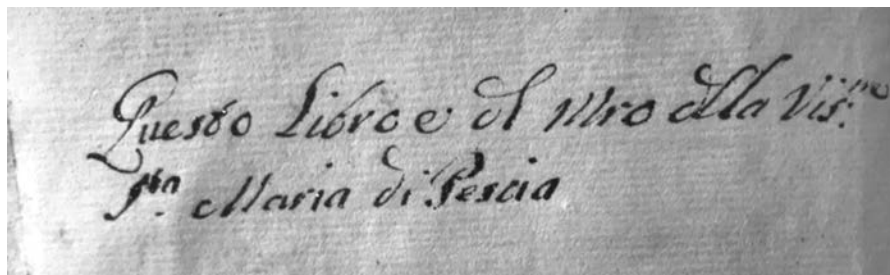 Questo Libro e del Mro della Vis:ne
S.ta Maria di Pescia